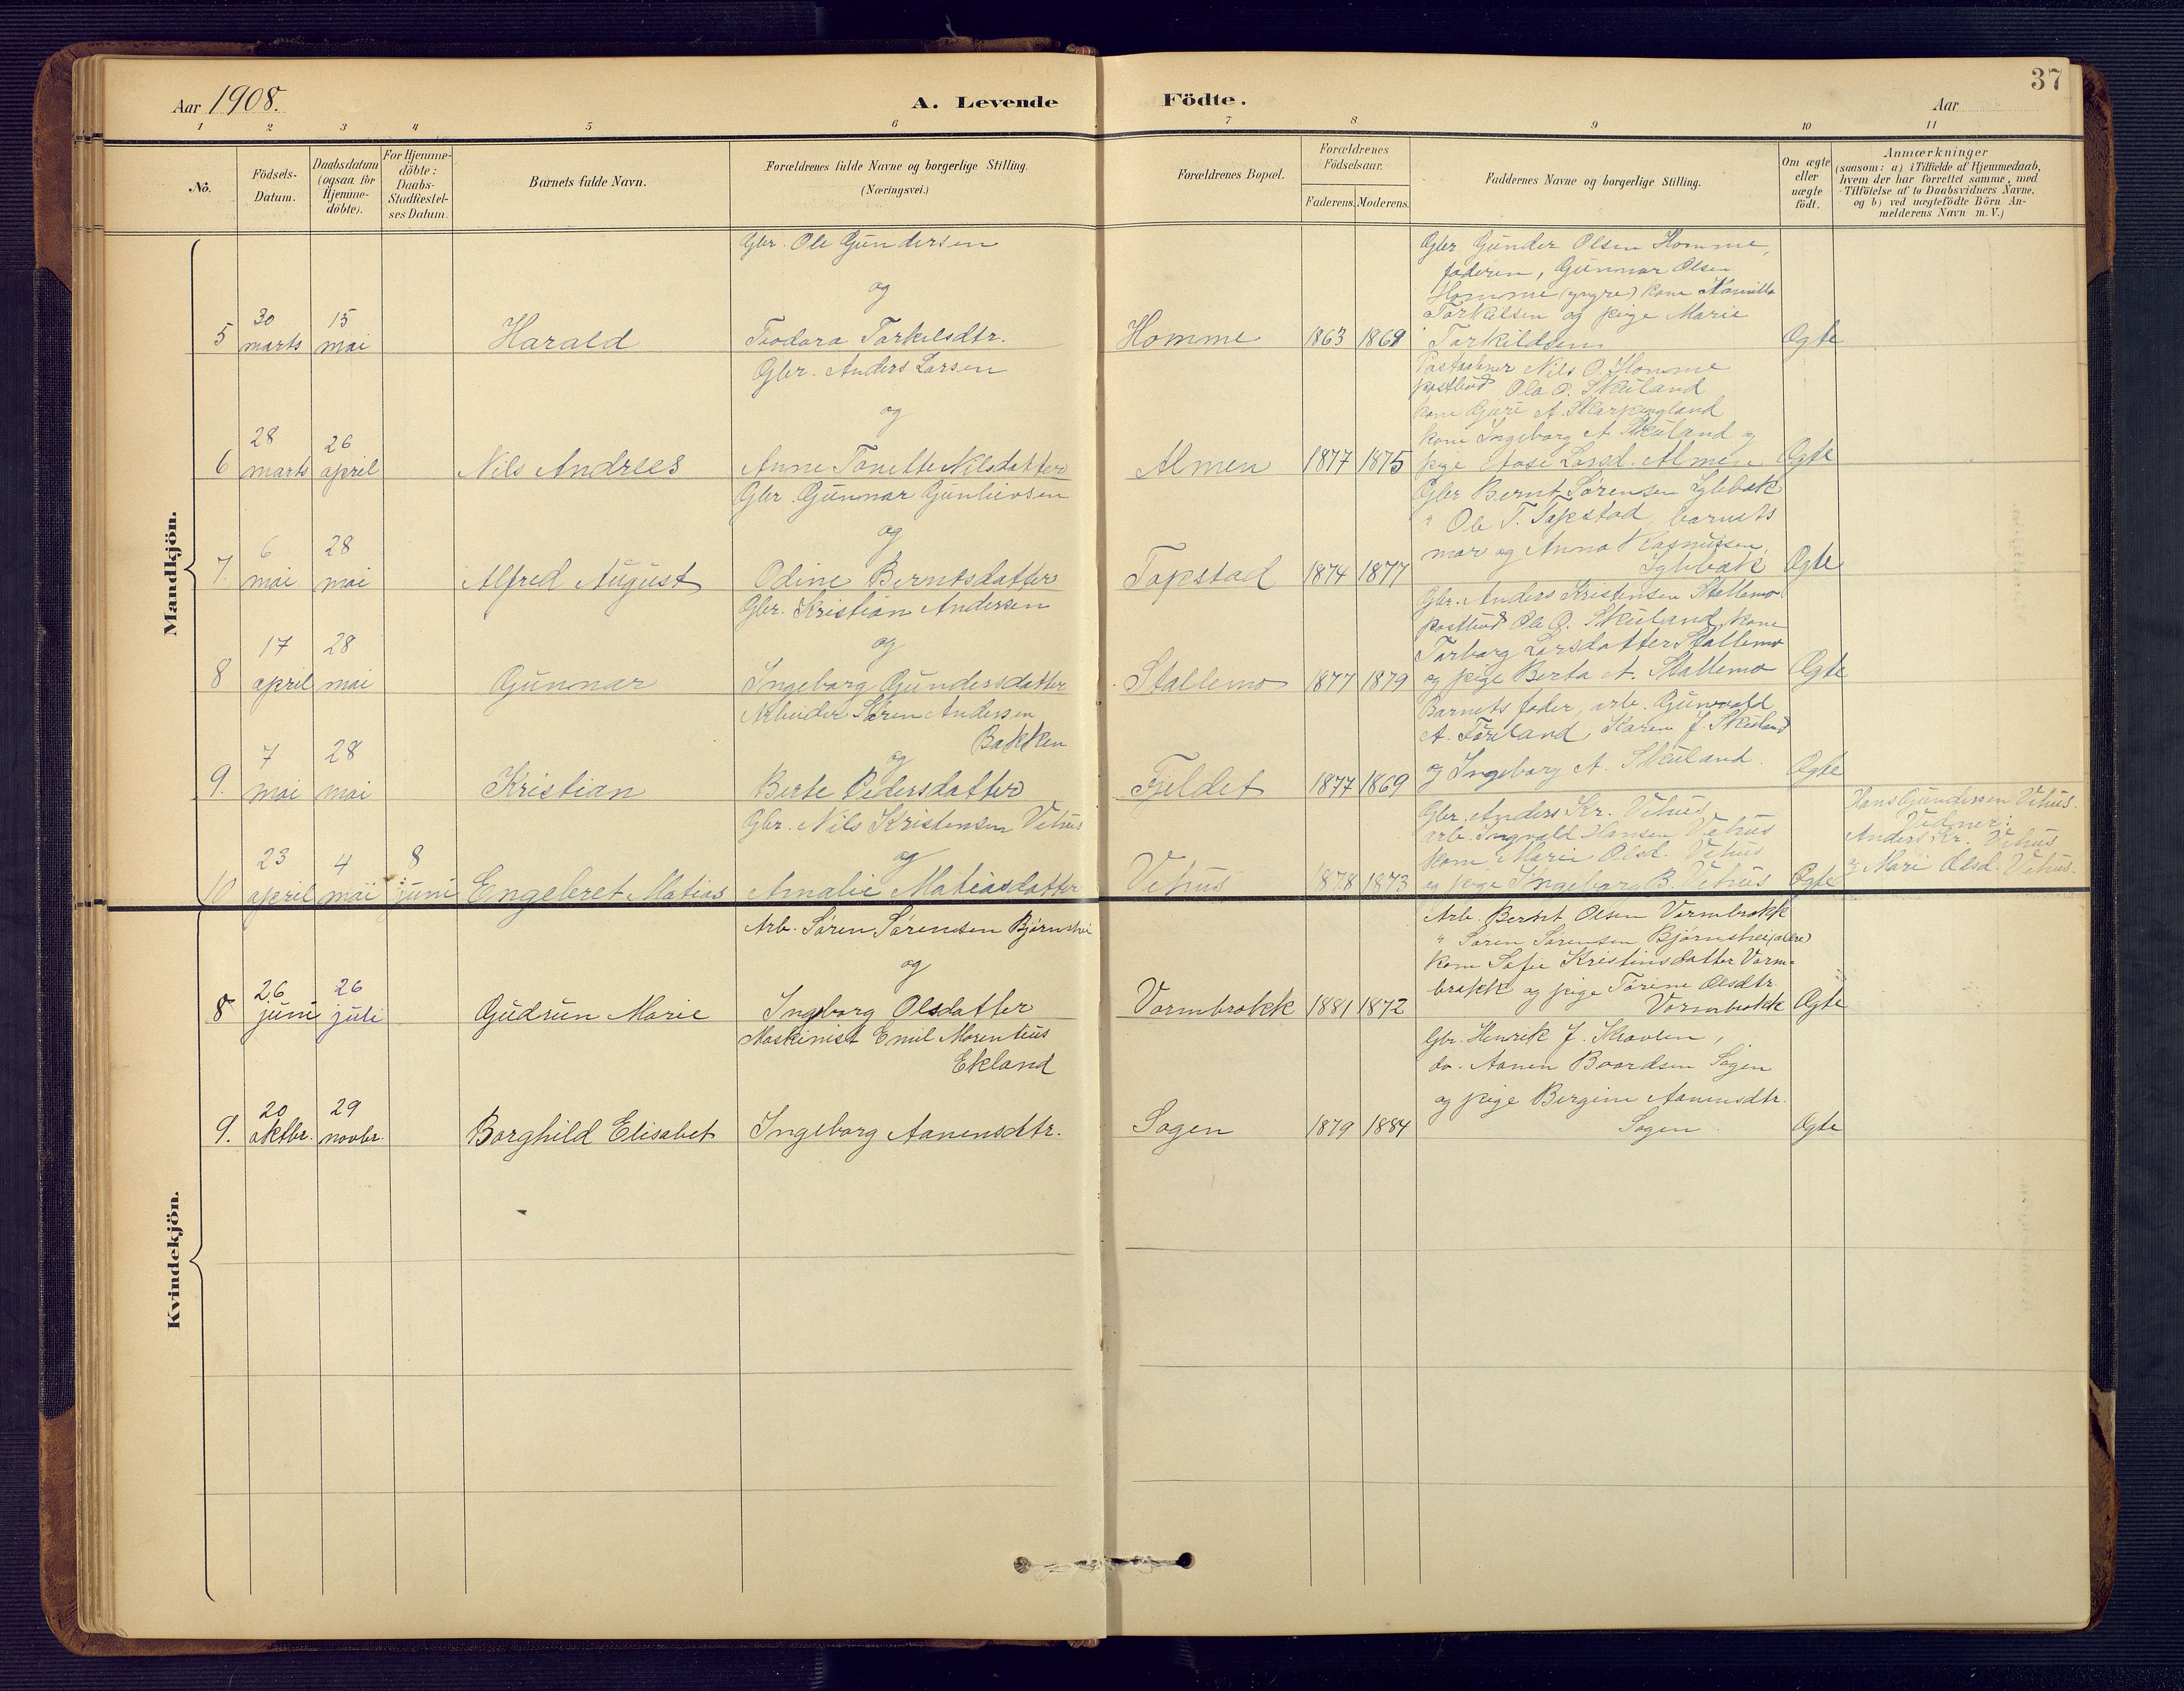 37
Aar 1908.
A. Levende Födte.
Aar
1 2 3 4 5 6 7 8 9 10 11
No.
Födsels-
Datum.
Daabsdatum
(ogsaa for
Hjemme-
döbte).
For Hjemme-
döbte:
Daabs-
Stadfæstel-
ses Datum.
Barnets fulde Navn.
Forældrenes fulde Navne og borgerlige Stilling.
(Næringsvei.)
Forældrenes Bopæl.
Forældrenes
Födselsaar.
Faderens. Moderens.
Faddernes Navne og borgerlige Stilling.
Om ægte
eller
uægte
födt.
Anmærkninger
(saasom: a) i Tilfælde af Hjemmedaab,
hvem der har forrettet samme, med
Tilföielse af to Daabsvidners Navne,
og b) ved uægtefödte Börn An-
melderens Navn m. V.)
Mandkjön.
5
30
marts
15
mai
Harald
Gbr. Ole Gundersen
og
Teodora Torkelsdtr.
Homme
1863
1869
Gbr. Gunder Olsen Homme,
faderen, Gunnar Olsen
Homme (yngre) kone
Torkilsen og pige Marie
Torkildsen
Ægte
6
28
marts
26
april
Nils Andreas
Gbr. Anders Larsen
og
Anne Tonette Nilsdatter
Almen
1877
1875
Postaabner Nils O. Homme
postbud Ola O. Skuland
kone Guri A. Skarpengland
kone Ingeborg A. Skuland og
pige Aase Larsd. Almen
Ægte
7.
6
mai
28
mai
Alfred August
Gbr. Gunnar Gunlievsen
og
Odine Berntsdatter
Topstad
1874
1877
Gbr Bernt Sörensen Iglebæk
" Ole T. Topstad, barnets
mor og Anna Rasmussen,
Iglebæk
Ægte
8
17
april
28
mai
Gunnar
Gbr. Kristian Andersen
og
Ingeborg Gundersdatter
Stallemo
1877
1879
Gbr. Anders Kristensen Stallemo
postbud Ole O. Skuland, kone
Torborg Larsdatter Stallemo
og pige Berta A. Stallemo
Ægte
9.
7
mai
28
mai
Kristian
Arbeider Sören Andersen
Bakken
og
Berte Pedersdatter
Fjeldet
1877
1869
Barnets fader, arb. Gunvald
A. Föreland, Karen J. Skuland
og Ingeborg A. Skuland.
Ægte
10
23
april
4
mai
8
juni
Engebret Matias
Gbr. Nils Kristensen Vehus
og
Amalie Matiasdatter
Vehus
1878
1873
Gbr. Anders Kr. Vehus,
arb. Ingvald Hansen Vehus
kone Marie Olsd. Vehus
og pige Ingeborg B. Vehus
Ægte
Hans Gundersen Vehus.
Vidner:
Anders Kr. Vehus
og Mari Olsd. Vehus.
Kvindekjön.
8
26
juni
26
juli
Gudrun Marie
Arb. Sören Sörensen Björnshei
og
Ingeborg Olsdatter
Vormbrokk
1881
1872
Arb. Bernt Olsen Vormbrokk
" Sören Sörensen Björnshei (ældre)
kone Sofie Kristinsdatter Vorm-
brokk og pige Torine Olsdtr.
Vormbrokk
Ægte
9.
20
oktbr.
29
novbr.
Borghild Elisabet
Maskinist Emil Morentius
Ekland
Ingeborg Aanensdtr.
Sogen
1879
1884
Gbr. Henrik J. Skovlen,
do. Aanen Baardsen Sogen
og pige Bergine Aanensdtr.
Sogen.
Ægte